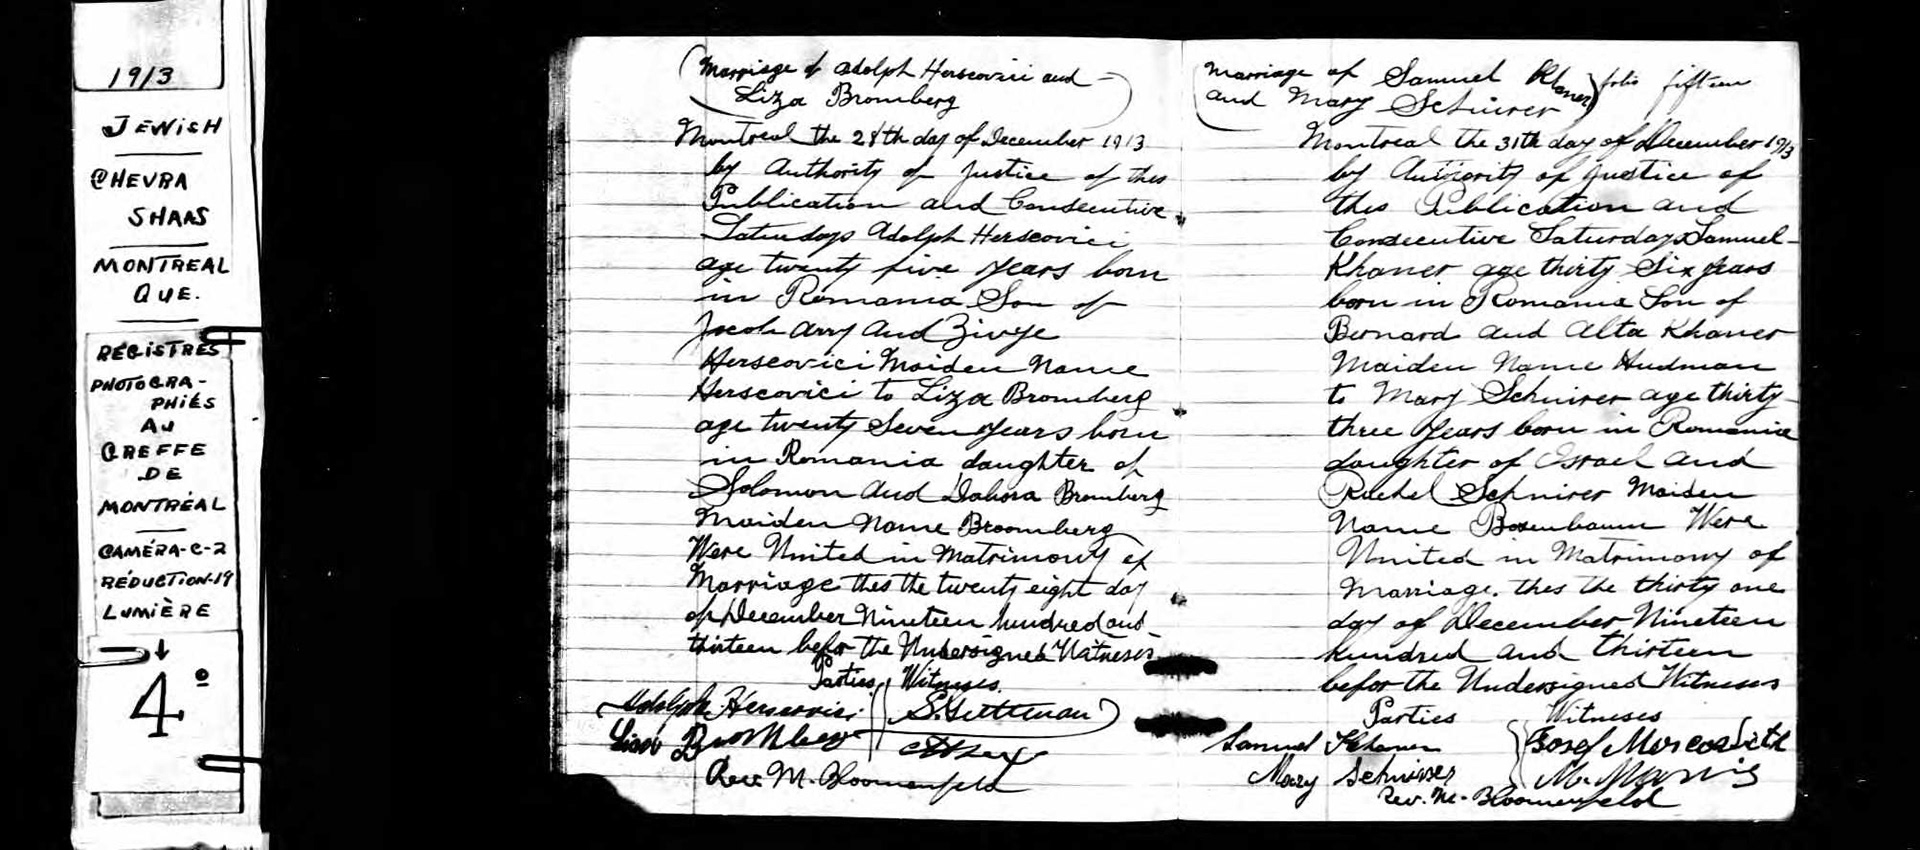 1913
JEWISH
CHEVRA
SHAAS
MONTREAL
QUE.
REGISTRES
PHOTOGRA-
PHIÉS
AU
GREFFE
DE
MONTRÉAL
CAMÉRA-C-2
RÉDUCTION-19
LUMIÈRE
4º
Marriage of Adolph Herscovici and
Liza Bromberg
Montreal the 28th day of December 1913
by Authority of Justice of thes
Publication and Consecutive
Saturdays Adolph Herscovici
age twenty five years born
in Romania Son of
Jacob Arry and Zivye
Herscovici Maiden Name
Herscovici to Liza Bromberg
age twenty Seven years born
in Romania daughter of
Solomon and Dabora Bromberg
Maiden Name Broomberg
Were United in Matrimony of
Marriage thes the twenty eight day
of December Nineteen hundred and
thirteen befor the Undersigned Witneses
Parties Witneses
Adolph Herscovici
Lisa Bromberg
Rev. M. Bloomenfeld
Marriage of Samuel Khaner folio fifteen
and Mary Schnirer
Montreal the 31th day of December 1913
by Authority of Justice of
this Publication and
Consecutive Saturdays Samuel
Khaner age thirty Six years
born in Romania Son of
Bernard and Alta Khaner
Maiden Name Hudman
to Mary Schnirer age thirty
three years born in Romania
daughter of Israel and
Rachel Schnirer Maiden
Name Bosenbaum Were
United in Matrimony of
Marriage. thes the thirty one
day of December Nineteen
hundred and thirteen
befor the Undersigned Witneses
Parties Witneses
Samuel Khaner
Mary Schnirer M. Marvis
Rev. M. Bloomenfeld